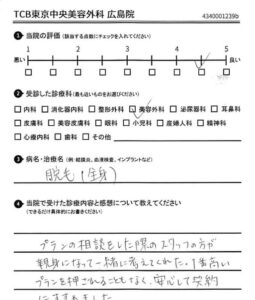 TCB東京中央美容外科 広島院
43400001239b
❶ 当院の評価 (該当する点数にチェックを入れてください)
1 2 3 4 5
悪い 良い
❷ 受診した診療科 (最も近いものをお選びください)
内科 消化器内科 整形外科 美容外科 泌尿器科 耳鼻科
皮膚科 美容皮膚科 眼科 小児科 産婦人科 精神科
心療内科 歯科 その他
❸ 病名・治療名 (例: 結膜炎、血液検査、インプラントなど)
脱毛(全身)
❹ 当院で受けた診療内容と感想について教えてください
(できるだけ具体的にお書きください)
プランの相談をした際のスタッフの方が
親身になって一緒に考えてくれた。1番高い
プランを押されることもなく、安心して契約